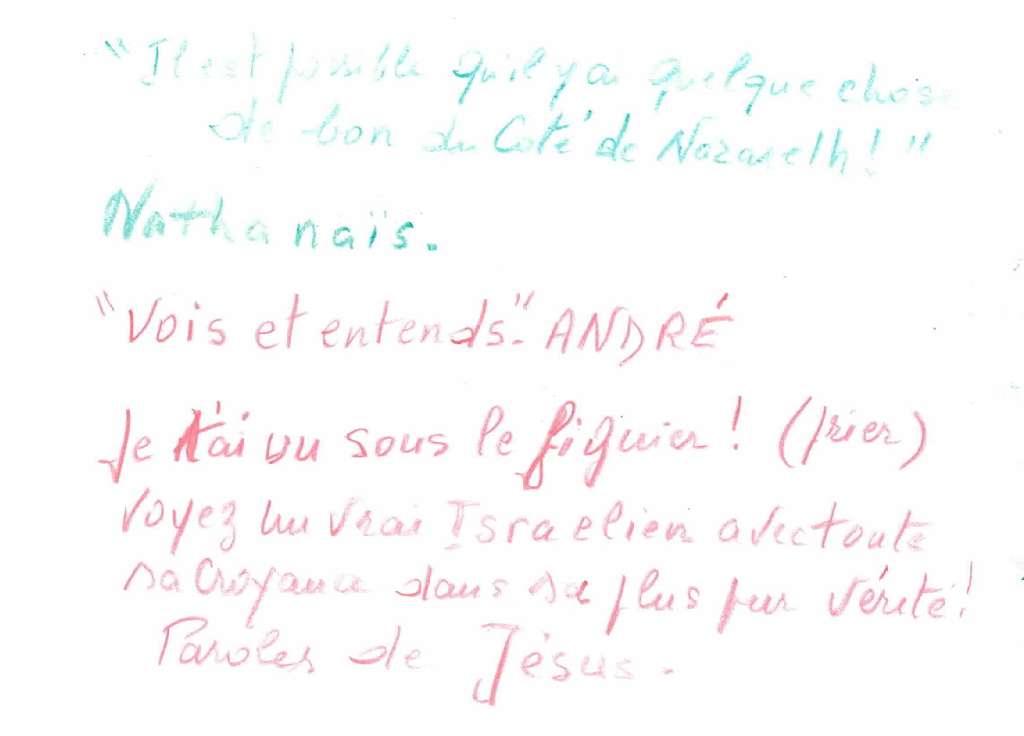 "Il est possible qu'il y a quelque chose
de bon du Coté de Nazareth!"
Nathanaïs.
"Vois et entends." ANDRÉ
Je t'ai vu sous le figuier! (prier)
Voyez un vrai Israelien avec toute
sa Croyance dans sa plus pur vérité!
Paroles de Jésus.